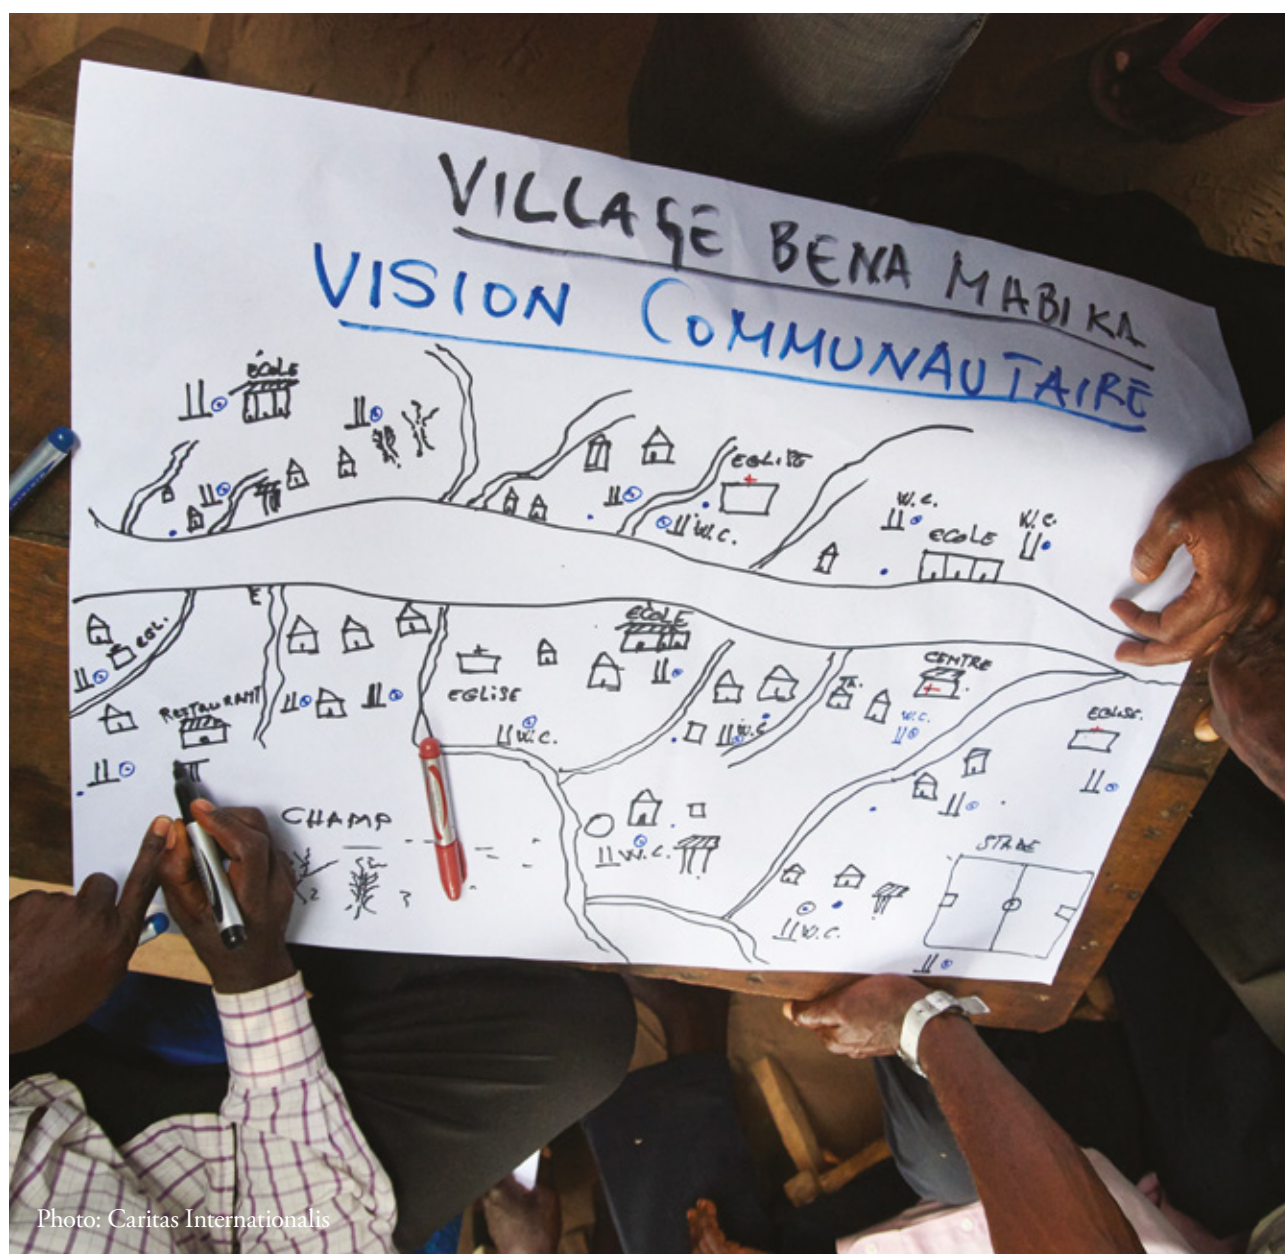 VILLAGE BENA MABIKA
VISION COMMUNAUTAIRE
ÉCOLE
EGLISE
W.C.
W.C.
ECOLE
W.C.
EGL.
E
ECOLE
RESTAURANT
EGLISE
W.C.
W.C
CENTRE
W.C.
EGLISE.
CHAMP
W.C.
STADE
W.C.
Photo: Caritas Internationalis